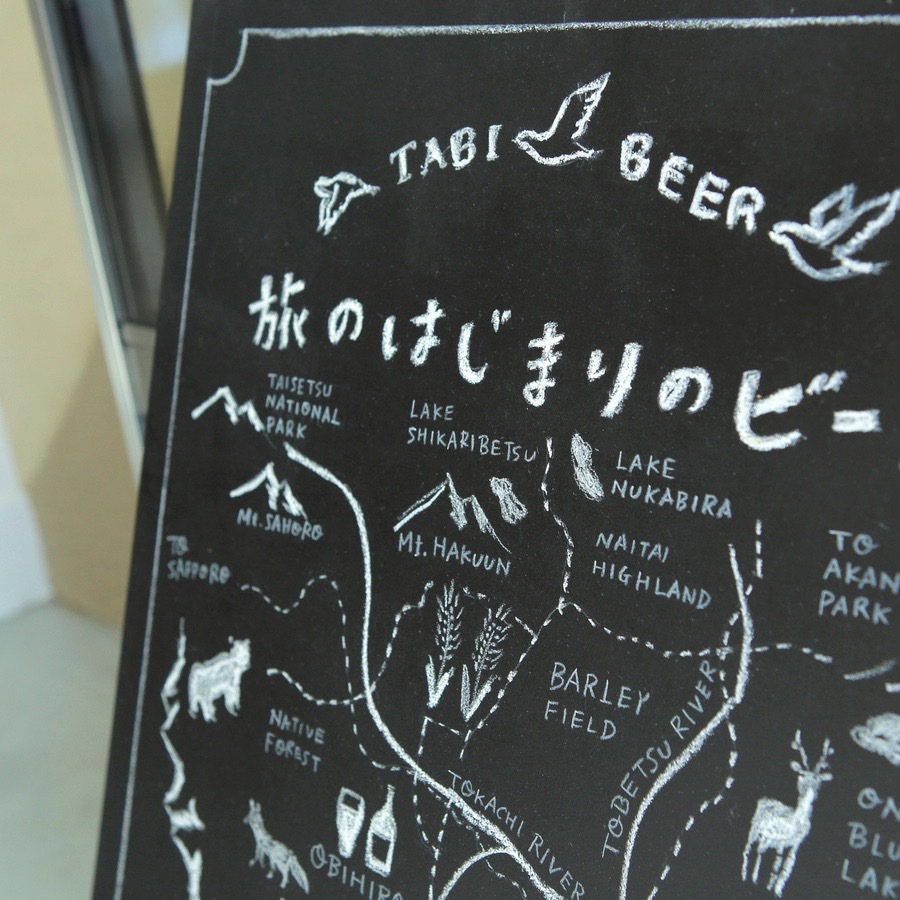 TABI BEER
旅のはじまりのビー
TAISETSU
NATIONAL
PARK
LAKE
SHIKARIBETSU
LAKE
NUKABIRA
Mt. SAHORO
Mt. HAKUUN
NAITAI
HIGHLAND
TO
AKAN
PARK
TO
SAPPORO
BARLEY
FIELD
NATIVE
FOREST
TOBETSU RIVER
TOKACHI RIVER
OBIHIRO
ON
BLU
LAK